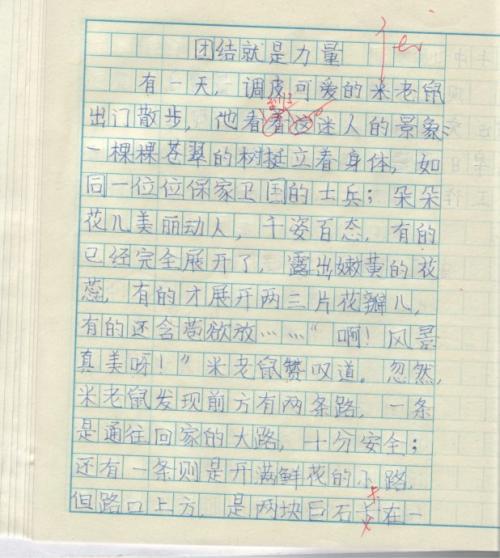 团结就是力量
有一天，调皮可爱的米老鼠
出门散步，他看看这迷人的景象：
一棵棵苍翠的树挺立着身体，如
同一位位保家卫国的士兵；朵朵
花儿美丽动人，千姿百态，有的
已经完全展开了，露出嫩黄的花
蕊，有的才展开两三片花瓣儿，
有的还含苞欲放……“啊！风景
真美呀！”米老鼠赞叹道。忽然，
米老鼠发现前方有两条路，一条
是通往回家的大路，十分安全；
还有一条则是开满鲜花的小路，
但路口上方，是两块巨石卡在一